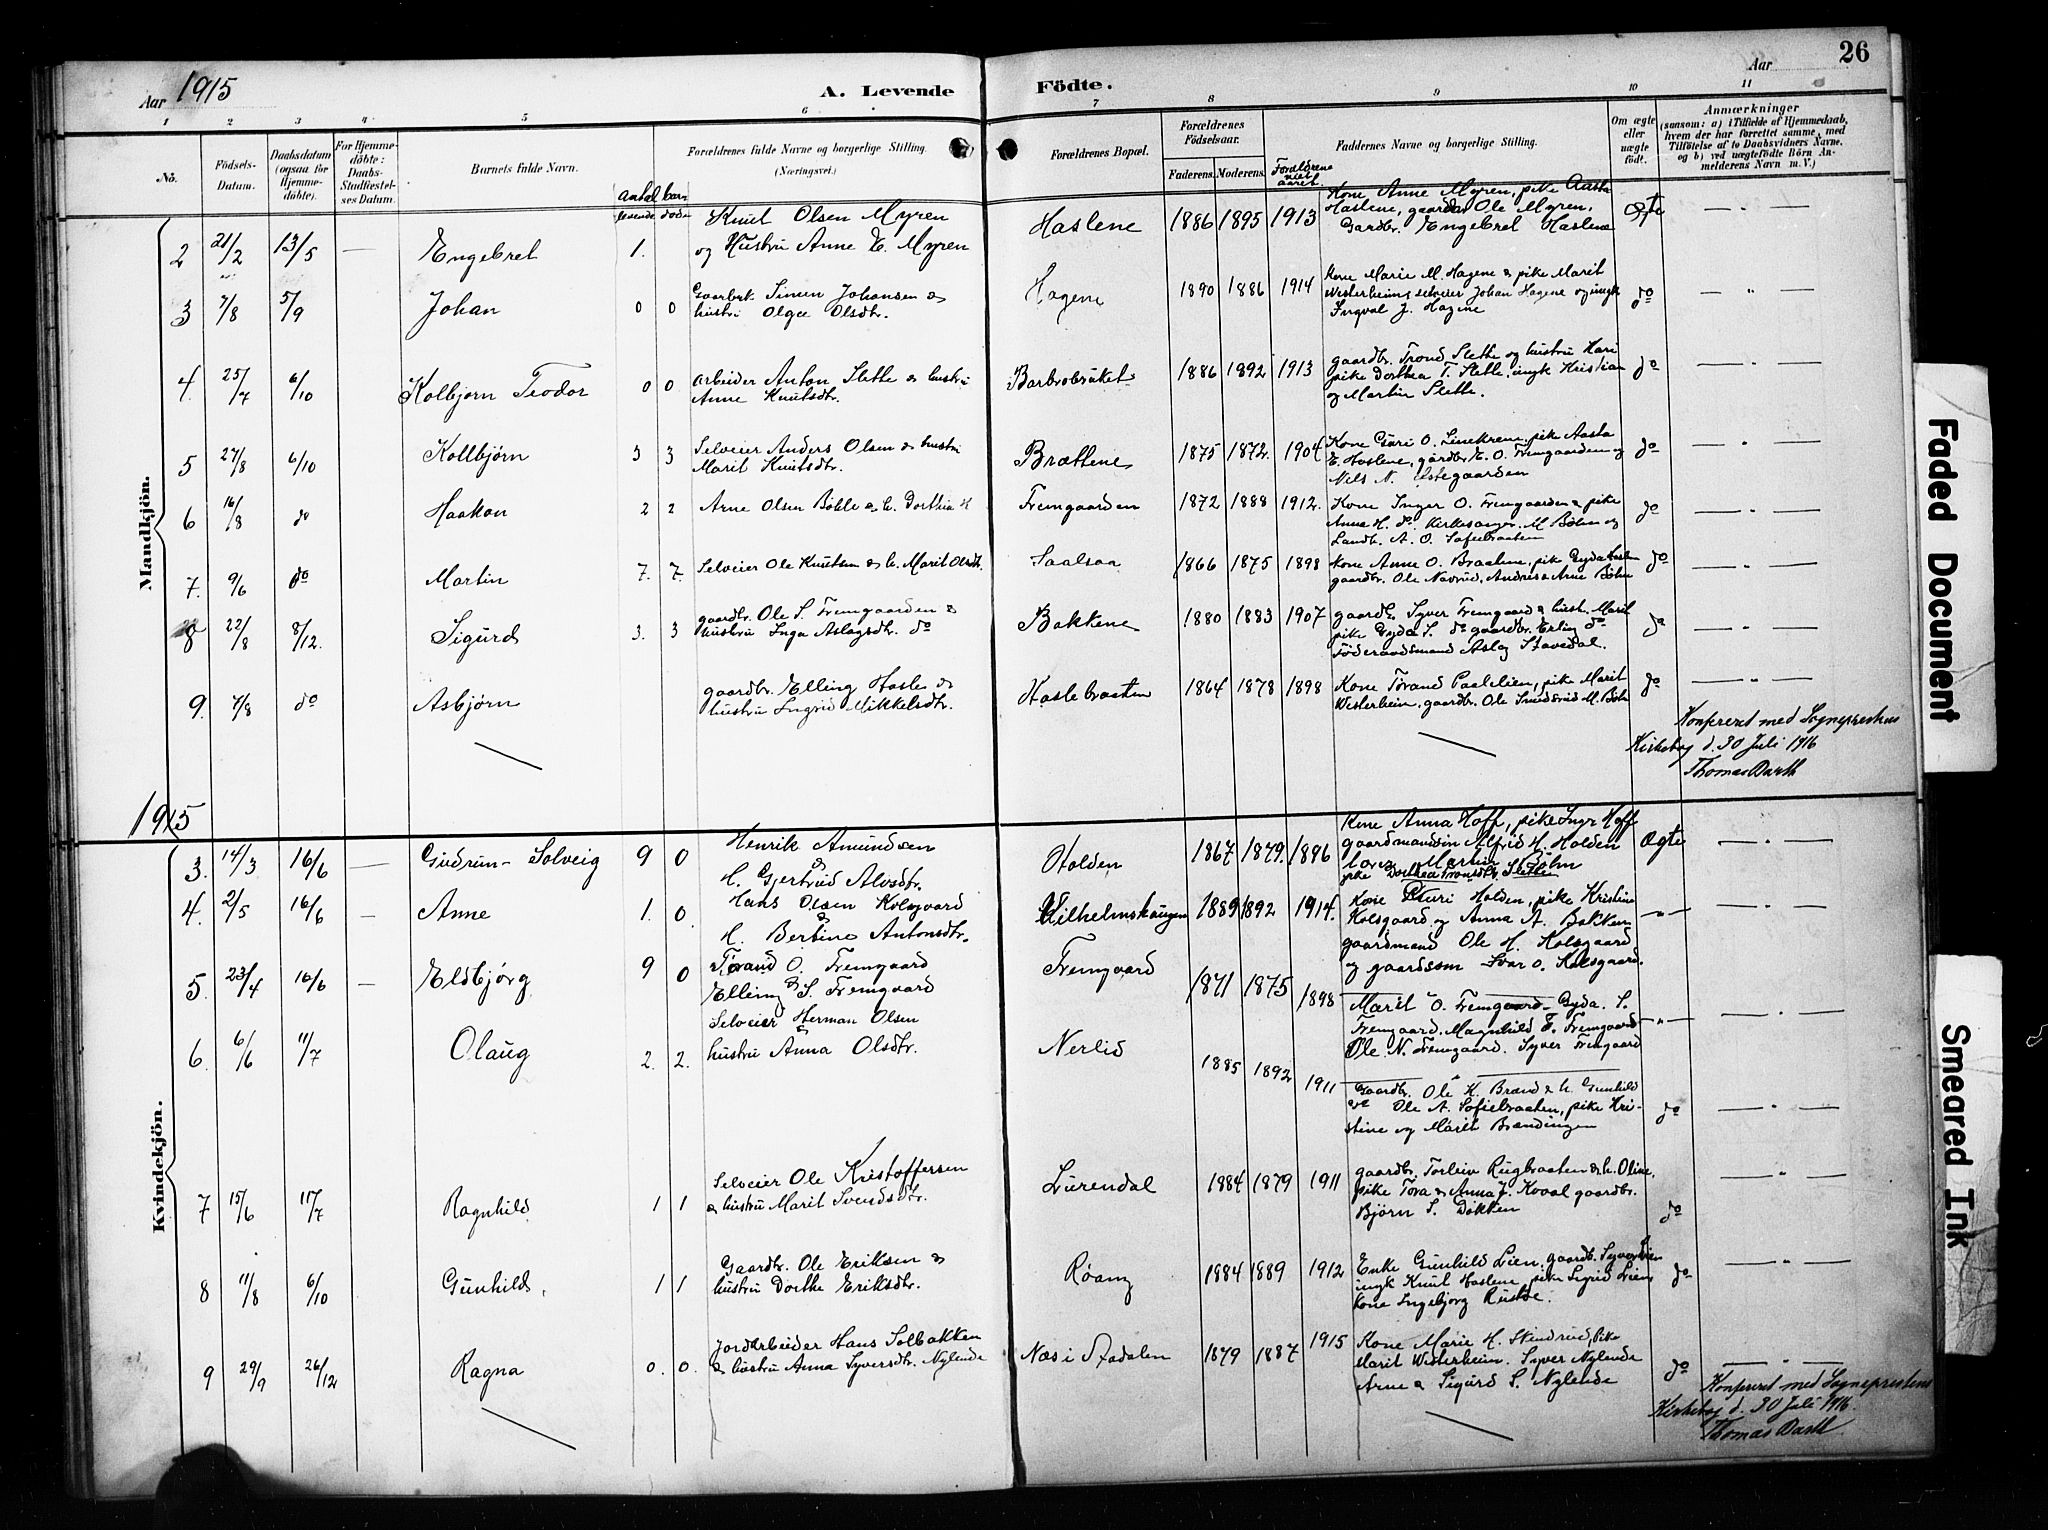 Aar 1915
A. Levende Födte.
Aar
26
1 2 3 4 5 6 7 8 9 10 11
No.
Födsels-Datum.
Daabsdatum (ogsaa for Hjemmedöbte).
For Hjemmedöbte: Daabs-Stadfæstelses Datum.
Barnets fulde Navn.
Antal barn
levende döde
Forældrenes fulde Navne og borgerlige Stilling. (Næringsvei.)
Forældrenes Bopæl.
Forældrenes Födselsaar.
Faderens. Moderens.
Forældrene viet aaret.
Faddernes Navne og borgerlige Stilling.
Om ægte eller uægte födt.
Anmærkninger
(saasom: a) i Tilfælde af Hjemmedaab, hvem der har forrettet samme, med Tilföielse af to Daabsvidners Navne, og b) ved uægtefödte Börn Anmelderens Navn m. V.)
Mandkjön.
2 21/2 13/5 — Engebret 1. Knut Olsen Myren
og Hustru Anne E. Myren
Haslene 1886 1895 1913
Kone Anne Myren, pike Aasta
Haslene, gaardbr Ole Myren,
Gardbr. Engebret Haslene
— " —
3 7/8 5/9 Johan 0 0 Gaardbr. Simen Johansen &
hustru Olga Olsdtr.
Hagene 1890 1886 1914
Kone Marie M. Hagene & pike Marit
Westerheim, selveier Johan Hagene og ungk
Ingval J. Hagene
do — " —
4. 25/7 6/10 Kolbjørn Teodor 0 0 Arbeider Anton Slette & hustru
Anne Knutsdtr.
Barbrobråket 1886 1892 1913
gaardbr. Trond Slette og hustru Kari
pike Dorthea T. Slette, ungk Kristian
og Martin Slette.
do — " —
5 27/8 6/10 Kollbjørn 3 3 Selveier Anders Olsen & hustru
Marit Knutsdtr.
Bråttene 1875 1872. 1904
Kone Guri O. pike Aasta
E. Haslene, gårdbr. E. O. Fremgaarden og
Nils N.
do — " —
6 16/8 do Haakon 2 2 Arne Olsen Bøhle & h. Dorthea H
Fremgaarden 1872 1888 1912.
Kone Inger O. Fremgaarden & pike
Anna H. do. Kirkesanger. M Bøhn og
Landh. A. O. Sofiebraaten
do — " —
7. 9/6 do Martin 7. 7. Selveier Ole Knutsen & h. Marit Olsdtr.
Saalsaa 1866 1875 1898
Kone Anne O. Braatene, pike Gyda
gaardbr. Ole Navrud, Andreas & Arne Bøhn
do — " —
8 22/8 8/12. Sigurd 3. 3 gaardbr. Ole S. Fremgaarden &
hustru Inga Aslagsdtr. do
Bakkene 1880 1883 1907
gaardb. Syver Fremgaard & hust. Marit
pike Gyda S. do gaardbr. Erling do
Föderaadsmand Aslag Stavedal.
do — " —
9. 7/8 do Asbjørn gaardbr. Elling Hasle &
hustru Ingrid Mikkelsdtr.
Haslebraaten 1864 1878 1898
Kone Torand Paalelien, pike Marit
Westerheim, gaardbr. Ole Smedsrud M. Bøhn
do — " —
Konfereret med Sogneprestens
Kirkebog d. 30 Juli 1916
Thomas Barth
1915
Kvindekjön.
3. 14/3 16/6 — Gudrun Solveig 9 0 Henrik Amundsen
&
H. Gjertrud Alvsdtr.
Holden 1867 1879. 1896
Kone Anna Hoff, pike Inger Hoff
gaardmandsøn Alfrid H. Holden
Martin Bøhn
pike Dorthea Tronsdtr. Sletten
Ægte — " —
4. 2/5 16/6 — Anne 1. 0 Hans Olsen Kolsgaard
&
H. Bertine Antonsdtr.
Wilhelmshaugen 1889 1892 1914.
Kone Guri Holden, pike Kristine
Kolsgaard og Anna A. Bakken
gaardmand Ole H. Kolsgaard
og gaardssøn Ivar O. Kolsgaard.
— " — — " —
5. 23/4 16/6 — Eldbjørg 9 0 Torand O. Fremgaard
&
Elling S. Fremgaard
Fremgaard 1871 1875 1898
Marit O. Fremgaard Gyda. S.
Fremgaard. Magnhild E. Fremgaard
Ole. N. Fremgaard. Syver Fremgaard
— " — — " —
6. 6/6 11/7 Olaug 2. 2. Selveier Herman Olsen
&
hustru Anna Olsdtr.
Nerlid 1885 1892 1911
Gaardbr. Ole K. Brænd & h. Gunhild
Ole A. Sofiebraaten, pike Kri-
stine og Marit Brændingen
do — " —
7 15/6 11/7 Ragnhild 1 1 Selveier Ole Kristoffersen
& hustru Marit Svendsdtr.
Lurendal 1884 1879 1911
gaardbr. Torleiv Rugbraaten & h. Oline,
pike Tora & Anna J. Kvaal gaardbr.
Bjørn S. Dokken
do "
8 11/8 6/10 Gunhild 1 1 Gaardbr. Ole Eriksen &
hustru Dorthe Eriksdtr.
Røang 1884 1889 1912
Enke Gunhild Lien, gaardb. Syver Lien
ungk Knut Haslene, pike Sigrid Lien
Kone Ingebjorg Rustde.
do — " —
9 29/9 26/12 Ragna 0. 0. Jordarbeider Hans Solbakken
& hustru Anna Syversdtr. Nylende
Næs i Aadalen 1879 1887 1915
Kone Marie H. Skindrud, Pike
Marit Westerheim. Syver Nylende
Arne & Sigurd S. Nylende
do — " —
Konfereret med Sogneprestens
Kirkebog d. 30 Juli 1916.
Thomas Barth
Faded Document
Smeared Ink